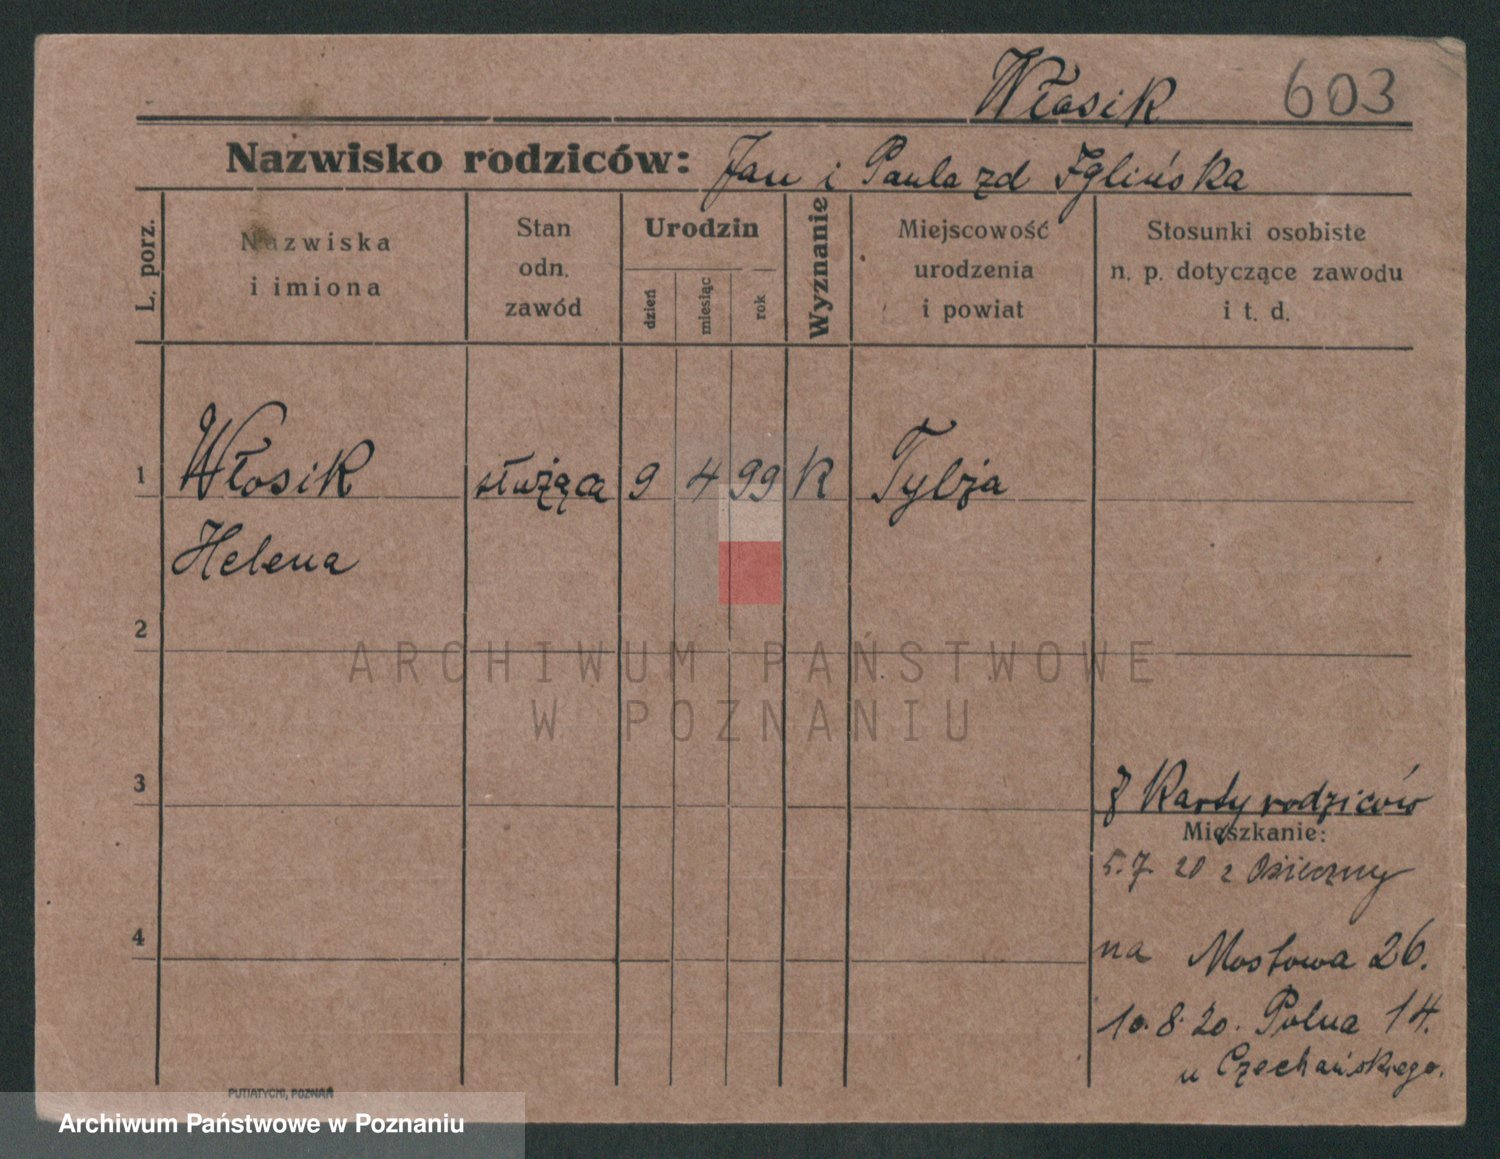 Włosik 603
Nazwisko rodziców: Jan i Paula zd Iglińska
L. porz.
Nazwiska
i imiona
Stan
odn.
zawód
Urodzin
dzień
miesiąc
rok
Wyznanie
Miejscowość
urodzenia
i powiat
Stosunki osobiste
n. p. dotyczące zawodu
i t. d.
1 Włosik służąca 9 4 99 K Tylża
Helena
2
ARCHIWUM PAŃSTWOWE
W POZNANIU
3
z Karty rodziców
Mieszkanie:
5.7 20 z Osieczny
4
na Mostowa 26.
10.8.20. Polna 14.
u Czechańskiego.
PUTIATYCKI, POZNAŃ
Archiwum Państwowe w Poznaniu